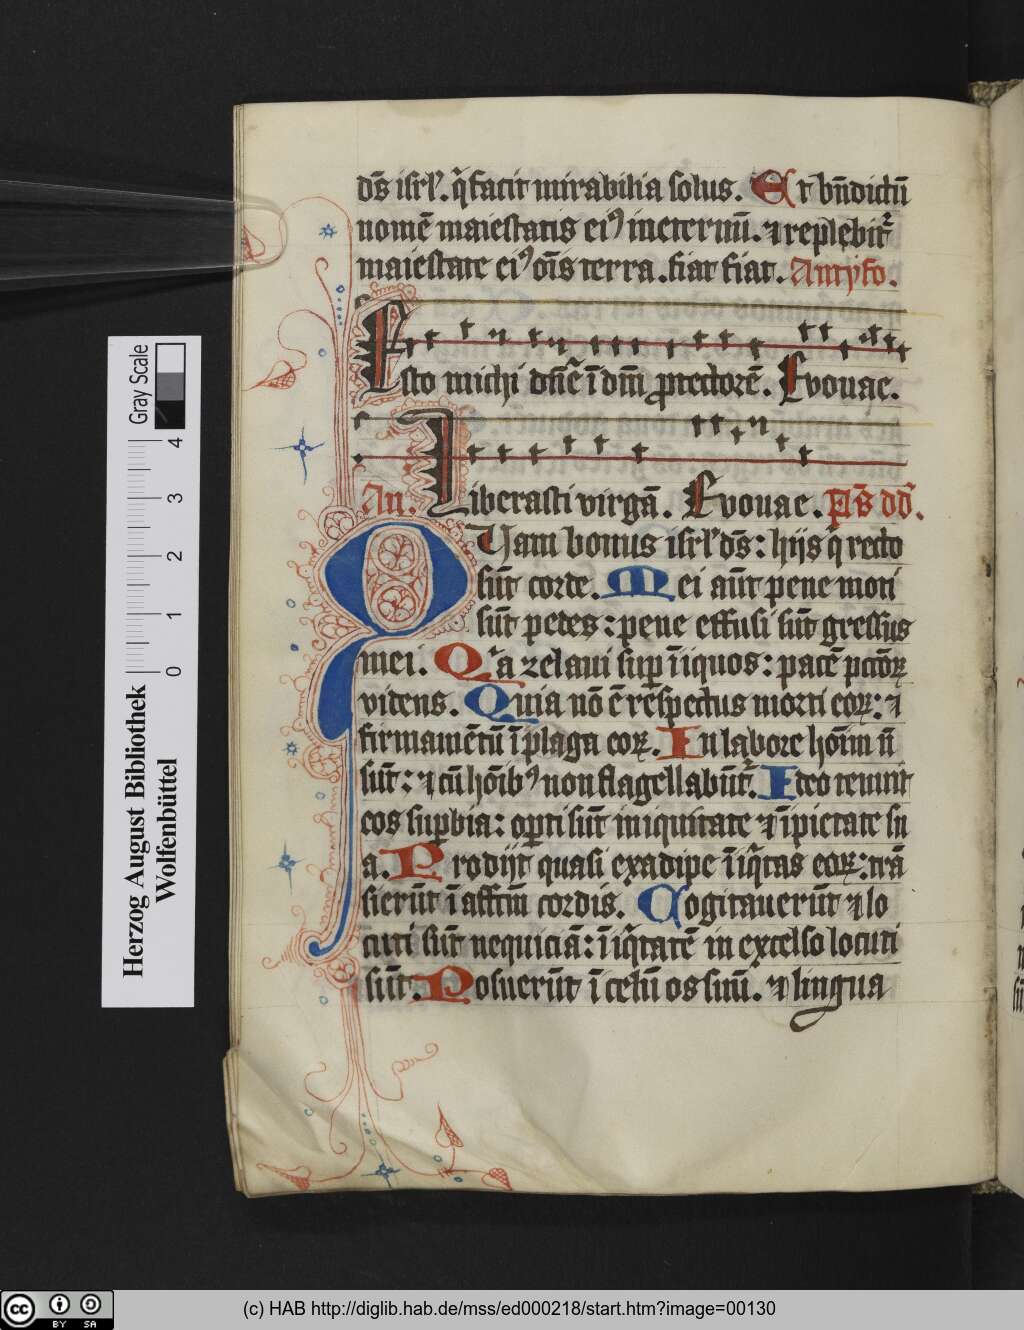 dn̄s isrl̕. q̇ facit mirabilia solus. Et bn̄dictū
nomē maiestatis ei⁹ ineternū. ⁊ replebit᷑
maiestate ei⁹ oīs terra. fiat fiat. Antyfo.
Esto michi dn̄e ī dm̄ ꝓtectorē. Evouae.
An. Liberasti virgā. Evouae. Ps̄ dd̄.
Quam bonus isrl̕ ds̄: hijs q̇ recto
sūt corde. Mei aūt pene moti
sūt pedes: pene effusi sūt gressus
mei. Qͥa zelaui suꝑ īiquos: pacē pctōꝝ
videns. Quia nō ē respectus morti eoꝝ: ⁊
firmamētū ī plaga eoꝝ. In labore hoīm nō
sūt: ⁊ cū hoīb⁹ non flagellabūt᷑. Ideo tenuit
eos suꝑbia: oꝑti sūt iniquitate ⁊ īpietate su
a. Prodijt quasi exadipe īiq̇tas eoꝝ: trā
sierūt ī affctm̄ cordis. Cogitauerūt ⁊ lo
cuti sūt nequiciā: īiq̇tatē in excelso locuti
sūt. Posuerūt ī celū os suū. ⁊ lingua
Herzog August Bibliothek
Wolfenbüttel
0 1 2 3 4
Gray Scale
cc BY SA
(c) HAB http://diglib.hab.de/mss/ed000218/start.htm?image=00130